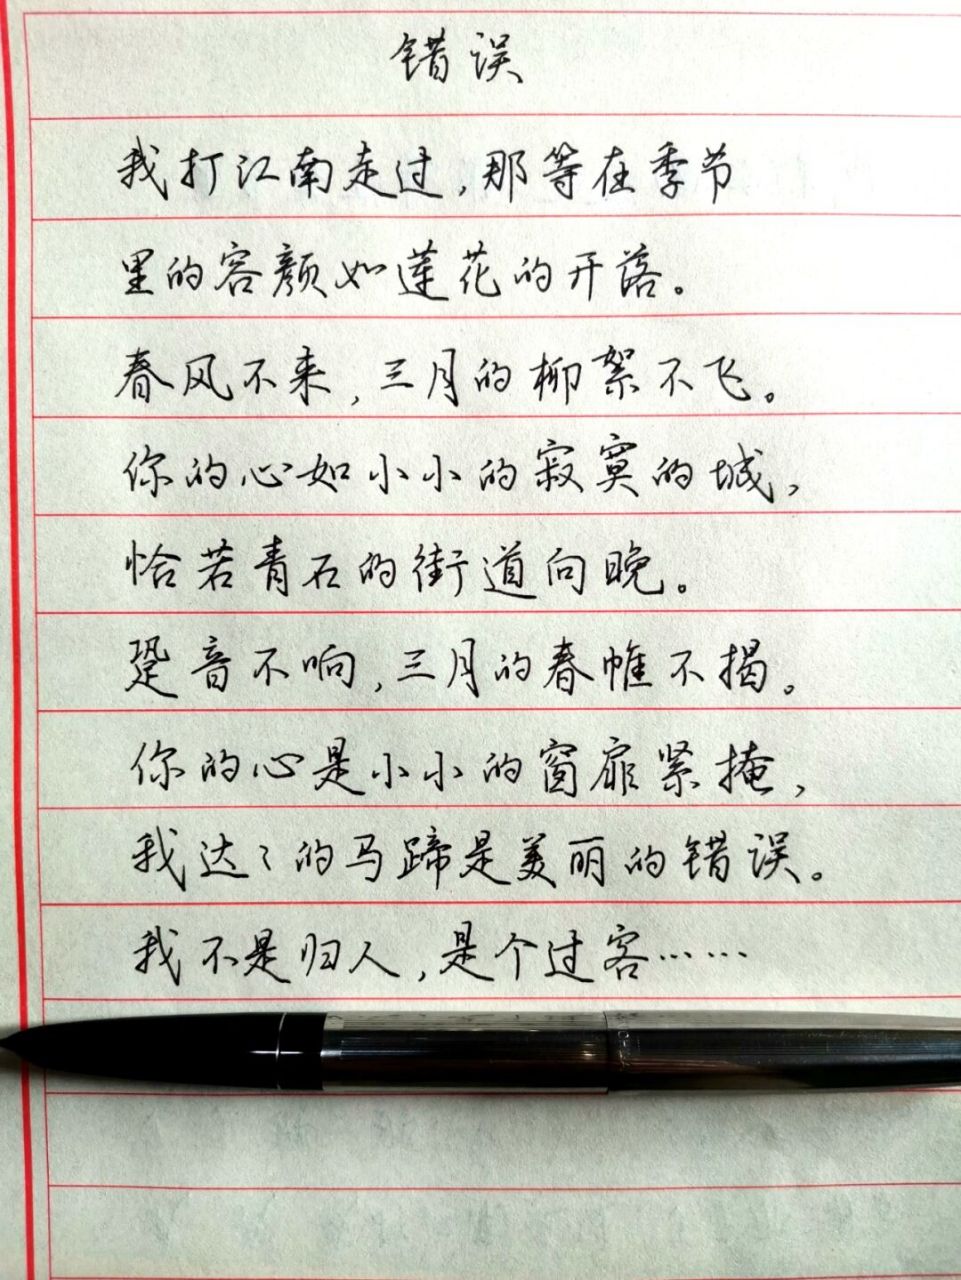 错误
我打江南走过,那等在季节
里的容颜如莲花的开落。
春风不来,三月的柳絮不飞。
你的心如小小的寂寞的城,
恰若青石的街道向晚。
跫音不响,三月的春帷不揭。
你的心是小小的窗扉紧掩,
我达々的马蹄是美丽的错误。
我不是归人,是个过客……